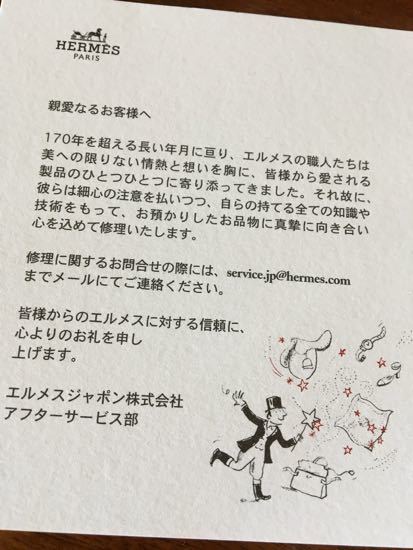 HERMÈS
PARIS
親愛なるお客様へ
170年を超える長い年月に亘り、エルメスの職人たちは
美への限りない情熱と想いを胸に、皆様から愛される
製品のひとつひとつに寄り添ってきました。それ故に、
彼らは細心の注意を払いつつ、自らの持てる全ての知識や
技術をもって、お預かりしたお品物に真摯に向き合い
心を込めて修理いたします。
修理に関するお問合せの際には、service.jp@hermes.com
までメールにてご連絡ください。
皆様からのエルメスに対する信頼に、
心よりのお礼を申し
上げます。
エルメスジャポン株式会社
アフターサービス部